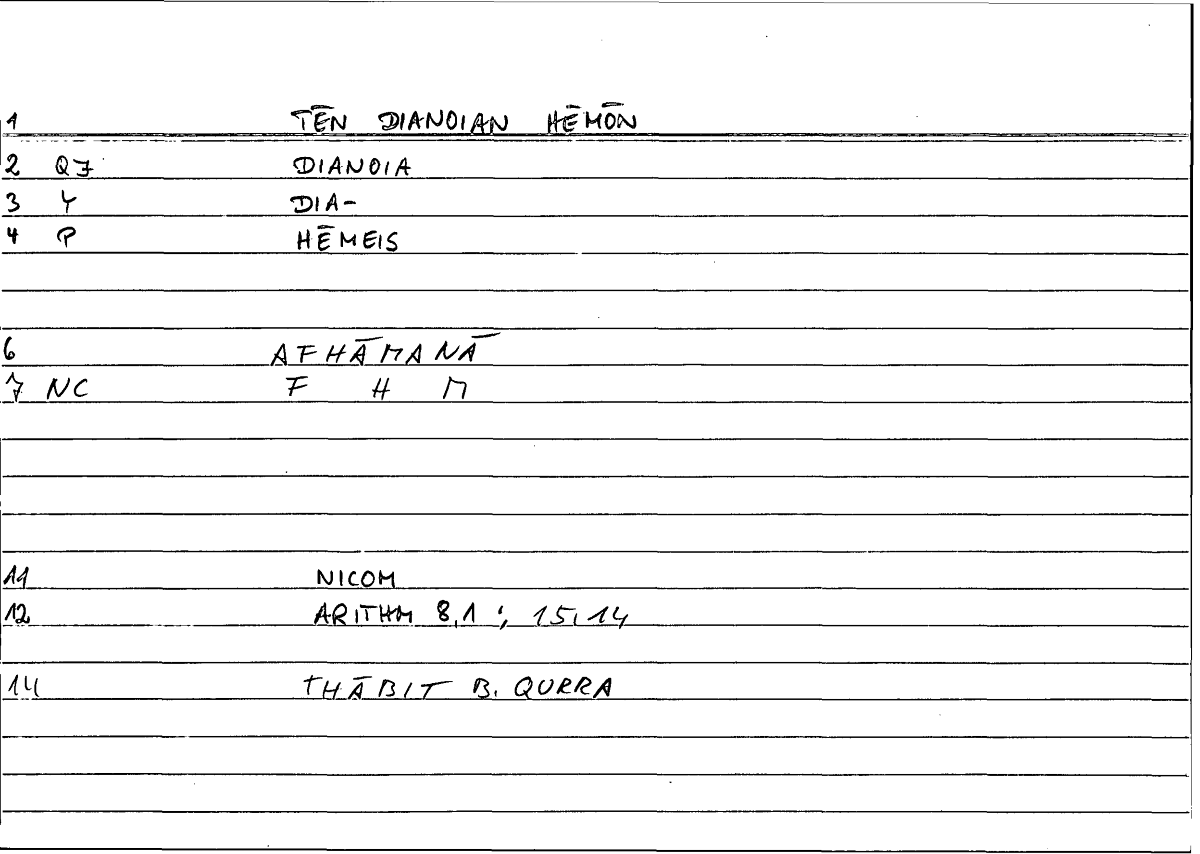 1 TĒN DIANOIAN HĒMŌN
2 Q7 DIANOIA
3 Y DIA-
4 P HĒMEIS
6 AFHĀMANĀ
7 NC F H M
11 NICOM
12 ARITHM 8,1 ; 15,14
14 THĀBIT B. QURRA